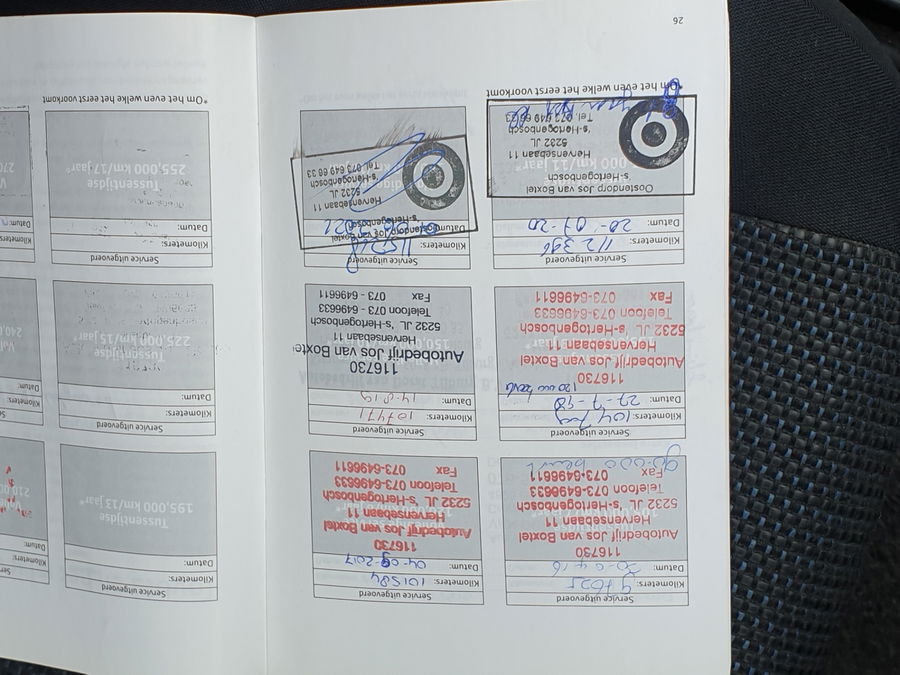 Service uitgevoerd
Kilometers: 97025
Datum: 20-04-16
116730
Autobedrijf Jos van Boxtel
Hervensebaan 11
5232 JL 's-Hertogenbosch
Telefoon 073-6496633
Fax 073-6496611
Service uitgevoerd
Kilometers: 101584
Datum: 04-09-2017
116730
Autobedrijf Jos van Boxtel
Hervensebaan 11
5232 JL 's-Hertogenbosch
Telefoon 073-6496633
Fax 073-6496611
Service uitgevoerd
Kilometers:
Datum: 27-7-18
116730
Autobedrijf Jos van Boxtel
Hervensebaan 11
5232 JL 's-Hertogenbosch
Telefoon 073-6496633
Fax 073-6496611
Service uitgevoerd
Kilometers: 107471
Datum: 14-8-19
116730
Autobedrijf Jos van Boxtel
Hervensebaan 11
5232 JL 's-Hertogenbosch
Telefoon 073 - 6496633
Fax 073 - 6496611
Service uitgevoerd
Kilometers: 112396
Datum: 20-07-20
Oostendorp Jos van Boxtel
's-Hertogenbosch
Hervensebaan 11
5232 JL
's-Hertogenbosch
Tel. 073 649 66 33
*Om het even welke het eerst voorkomt
Service uitgevoerd
Kilometers:
Datum: 2021
Oostendorp Jos van Boxtel
's-Hertogenbosch
Hervensebaan 11
5232 JL
's-Hertogenbosch
Tel. 073 649 66 33
26
Service uitgevoerd
Kilometers:
Datum:
Tussentijdse
195,000 km/13 jaar*
Kilometers:
Datum:
Service uitgevoerd
Kilometers:
Datum:
Tussentijdse
225,000 km/15 jaar*
Kilometers:
Datum:
Service uitgevoerd
Kilometers:
Datum:
Tussentijdse
255,000 km/17 jaar*
*Om het even welke het eerst voorkomt
Kilometers:
Datum: